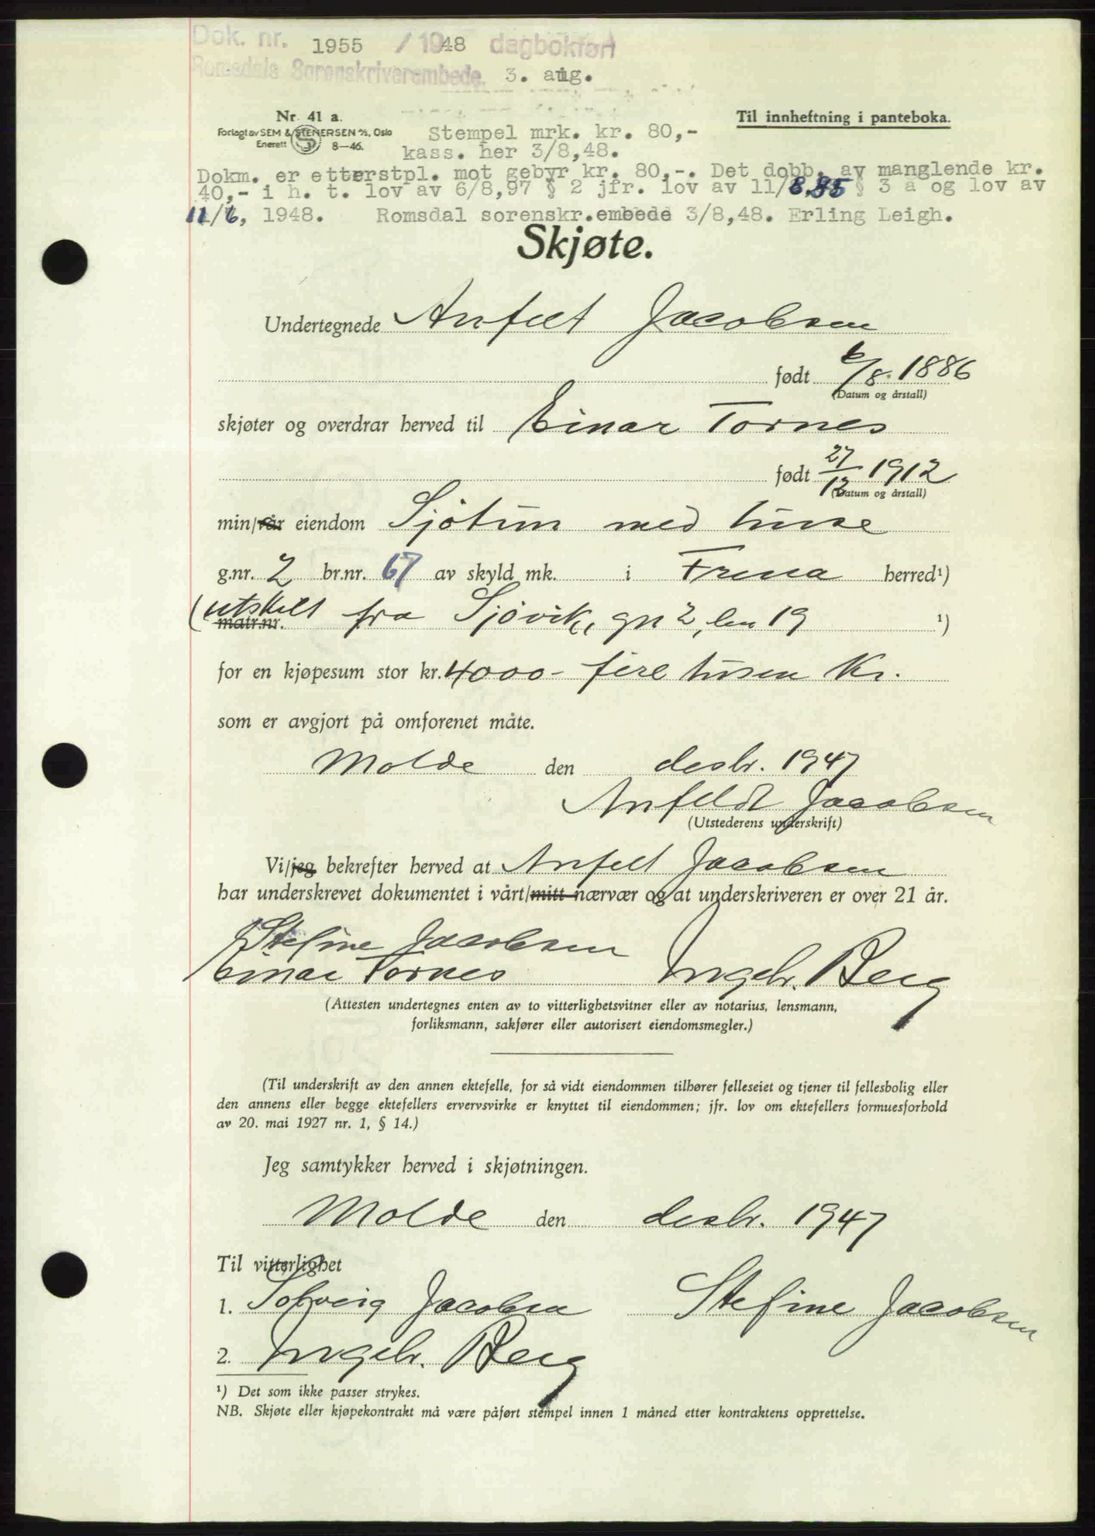 Dok. nr. 1955 / 1948 dagbokført
Romsdals Sorenskriverembede. 3. aug.
Nr. 41 a.
Forlagt av SEM & STENERSEN A/S, Oslo
Enerett 8-46.
Til innheftning i panteboka.
Stempel mrk. kr. 80,-
kass. her 3/8,48.
Dokm. er etterstpl. mot gebyr kr. 80,-. Det dobb. av manglende kr.
40,- i h. t. lov av 6/8,97 § 2 jfr. lov av 11/8,85 § 3 a og lov av
11/6, 1948. Romsdal sorenskr.embede 3/8,48. Erling Leigh.
Skjøte.
Undertegnede Anfelt Jacobsen
født 6/8. 1886
(Datum og årstall)
skjøter og overdrar herved til Einar Tornes
født 27/12 1912
(Datum og årstall)
min/vår eiendom Sjøtun med huse
g.nr. 2 br.nr. 67 av skyld mk. i Frena herred¹)
(utskilt matr.nr. fra Sjøvik, gn 2, bn 19 ¹)
for en kjøpesum stor kr. 4000- fire tusen Kr.
som er avgjort på omforenet måte.
Molde den desbr. 1947
Anfeldt Jacobsen
(Utstederens underskrift)
Vi/jeg bekrefter herved at Anfelt Jacobsen
har underskrevet dokumentet i vårt/mitt nærvær og at underskriveren er over 21 år.
Stefine Jacobsen
Einar Tornes Ingebr. Berg
(Attesten undertegnes enten av to vitterlighetsvitner eller av notarius, lensmann,
forliksmann, sakfører eller autorisert eiendomsmegler.)
(Til underskrift av den annen ektefelle, for så vidt eiendommen tilhører felleseiet og tjener til fellesbolig eller
den annens eller begge ektefellers ervervsvirke er knyttet til eiendommen; jfr. lov om ektefellers formuesforhold
av 20. mai 1927 nr. 1, § 14.)
Jeg samtykker herved i skjøtningen.
Molde den desbr. 1947
Til vitterlighet
1. Solveig Jacobsen Stefine Jacobsen
2. Ingebr. Berg
¹) Det som ikke passer strykes.
NB. Skjøte eller kjøpekontrakt må være påført stempel innen 1 måned etter kontraktens opprettelse.